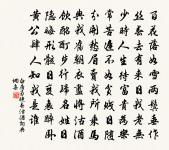 百花落如雪兩鬢垂作
絲春去有來日我老無
少時人生待富貴為樂
常苦遲不如貧賤日隨
分開愁眉賣我所乘馬
典我舊朝衣盡將沽酒
飲酩酊步行歸名姓日
隱晦形骸日變衰醉臥
黃公肆人知我是誰
白居易晚春沽酒